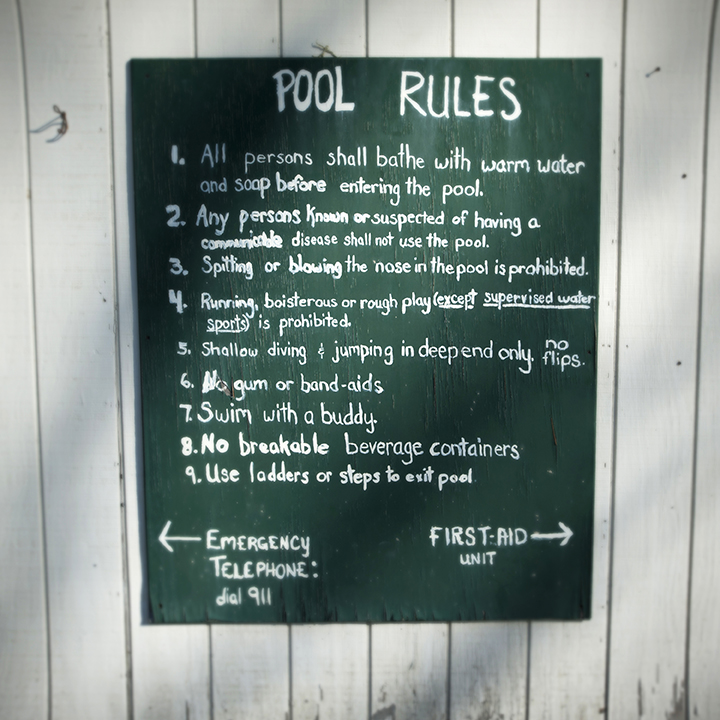 POOL RULES
1. All persons shall bathe with warm water
and soap before entering the pool.
2. Any persons known or suspected of having a
communicable disease shall not use the pool.
3. Spitting or blowing the nose in the pool is prohibited.
4. Running, boisterous or rough play (except supervised water
sports) is prohibited.
5. Shallow diving & jumping in deep end only, no flips.
6. No gum or band-aids
7. Swim with a buddy.
8. No breakable beverage containers
9. Use ladders or steps to exit pool.
← EMERGENCY
TELEPHONE:
dial 911
FIRST-AID →
UNIT